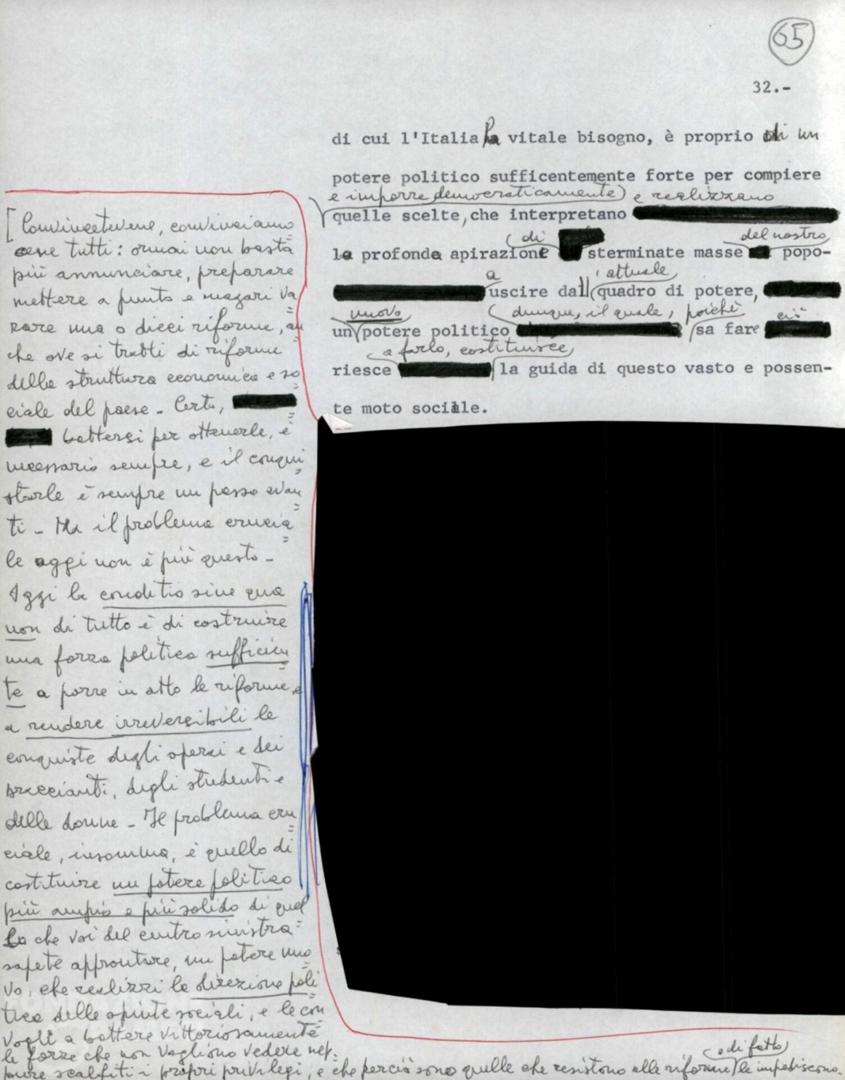 65
32.-
di cui l'Italia ha vitale bisogno, è proprio di un
potere politico sufficentemente forte per compiere
e imporre democraticamente e realizzano
quelle scelte, che interpretano
di del nostro
la profonda apirazione sterminate masse popo-
a attuale
uscire dal quadro di potere,
nuovo dunque, il quale, poichè ciò
un potere politico sa fare
a farlo, costituisce
riesce la guida di questo vasto e possen-
te moto sociale.
[Convincetevene, convinciamo
cene tutti: ormai non basta
più annunciare, preparare
mettere a punto e magari va
rare una o dieci riforme, an
che ove si tratti di riforme
della struttura economica e so
ciale del paese - Certo,
battersi per ottenerle, è
necessario sempre, e il conqui
starle è sempre un passo avan
ti - Ma il problema crucia
le oggi non è più questo -
Oggi la conditio sine qua
non di tutto è di costruire
una forza politica sufficien
te a porre in atto le riforme, e
a rendere irreversibili le
conquiste degli operai e dei
braccianti, degli studenti e
delle donne - Il problema cru
ciale, insomma, è quello di
costituire un potere politico
più ampio e più solido di quel
lo che voi del centro sinistra
sapete approntare, un potere nuo
vo, che realizzi la direzione poli
tica delle spinte sociali, e le con
vogli a battere vittoriosamente
le forze che non vogliono vedere nep=
e di fatto
pure scalfiti i propri privilegi, e che perciò sono quelle che resistono alle riforme le impediscono.